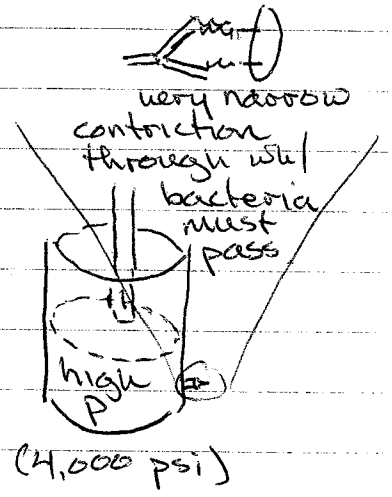 very narrow
contriction
through wh/
bacteria
must
pass
high
P
(4,000 psi)